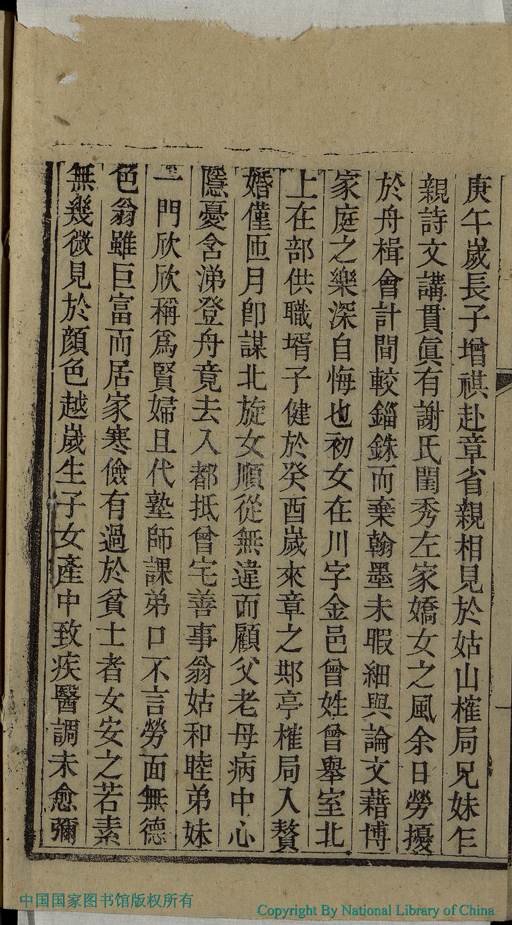 庚午歲長子增祺赴章省親相見於姑山榷局兄妹乍
親詩文講貫眞有謝氏閨秀左家嬌女之風余日勞擾
於舟楫會計間較錙銖而棄翰墨未暇細與論文藉博
家庭之樂深自悔也初女在川字金邑曾姓曾舉室北
上在部供職壻子健於癸酉歲來章之鄁亭榷局入贅
婚僅匝月卽謀北旋女順從無違而顧父老母病中心
隱憂含涕登舟竟去入都抵曾宅善事翁姑和睦弟妹
一門欣欣稱爲賢婦且代塾師課弟口不言勞面無德
色翁雖巨富而居家寒儉有過於貧士者女安之若素
無幾微見於顏色越歲生子女產中致疾醫調未愈彌
中国国家图书馆版权所有
Copyright By National Library of China